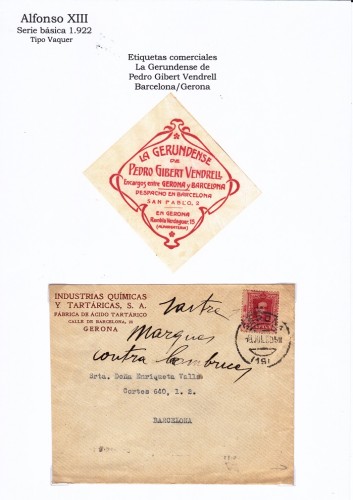 Alfonso XIII
Serie básica 1.922
Tipo Vaquer
Etiquetas comerciales
La Gerundense de
Pedro Gibert Vendrell
Barcelona/Gerona
LA GERUNDENSE
DE
PEDRO GIBERT VENDRELL
Encargos entre GERONA y BARCELONA
DESPACHO EN BARCELONA
SAN PABLO, 2
EN GERONA
Rambla Verdaguer, 15
(ALPARGATERIA)
INDUSTRIAS QUÍMICAS
Y TARTÁRICAS, S. A.
FÁBRICA DE ÁCIDO TARTÁRICO
CALLE DE BARCELONA,
GERONA
Marques
contra
Srta. Doña Enriqueta Valls
Cortes 640, 1. 2.
BARCELONA